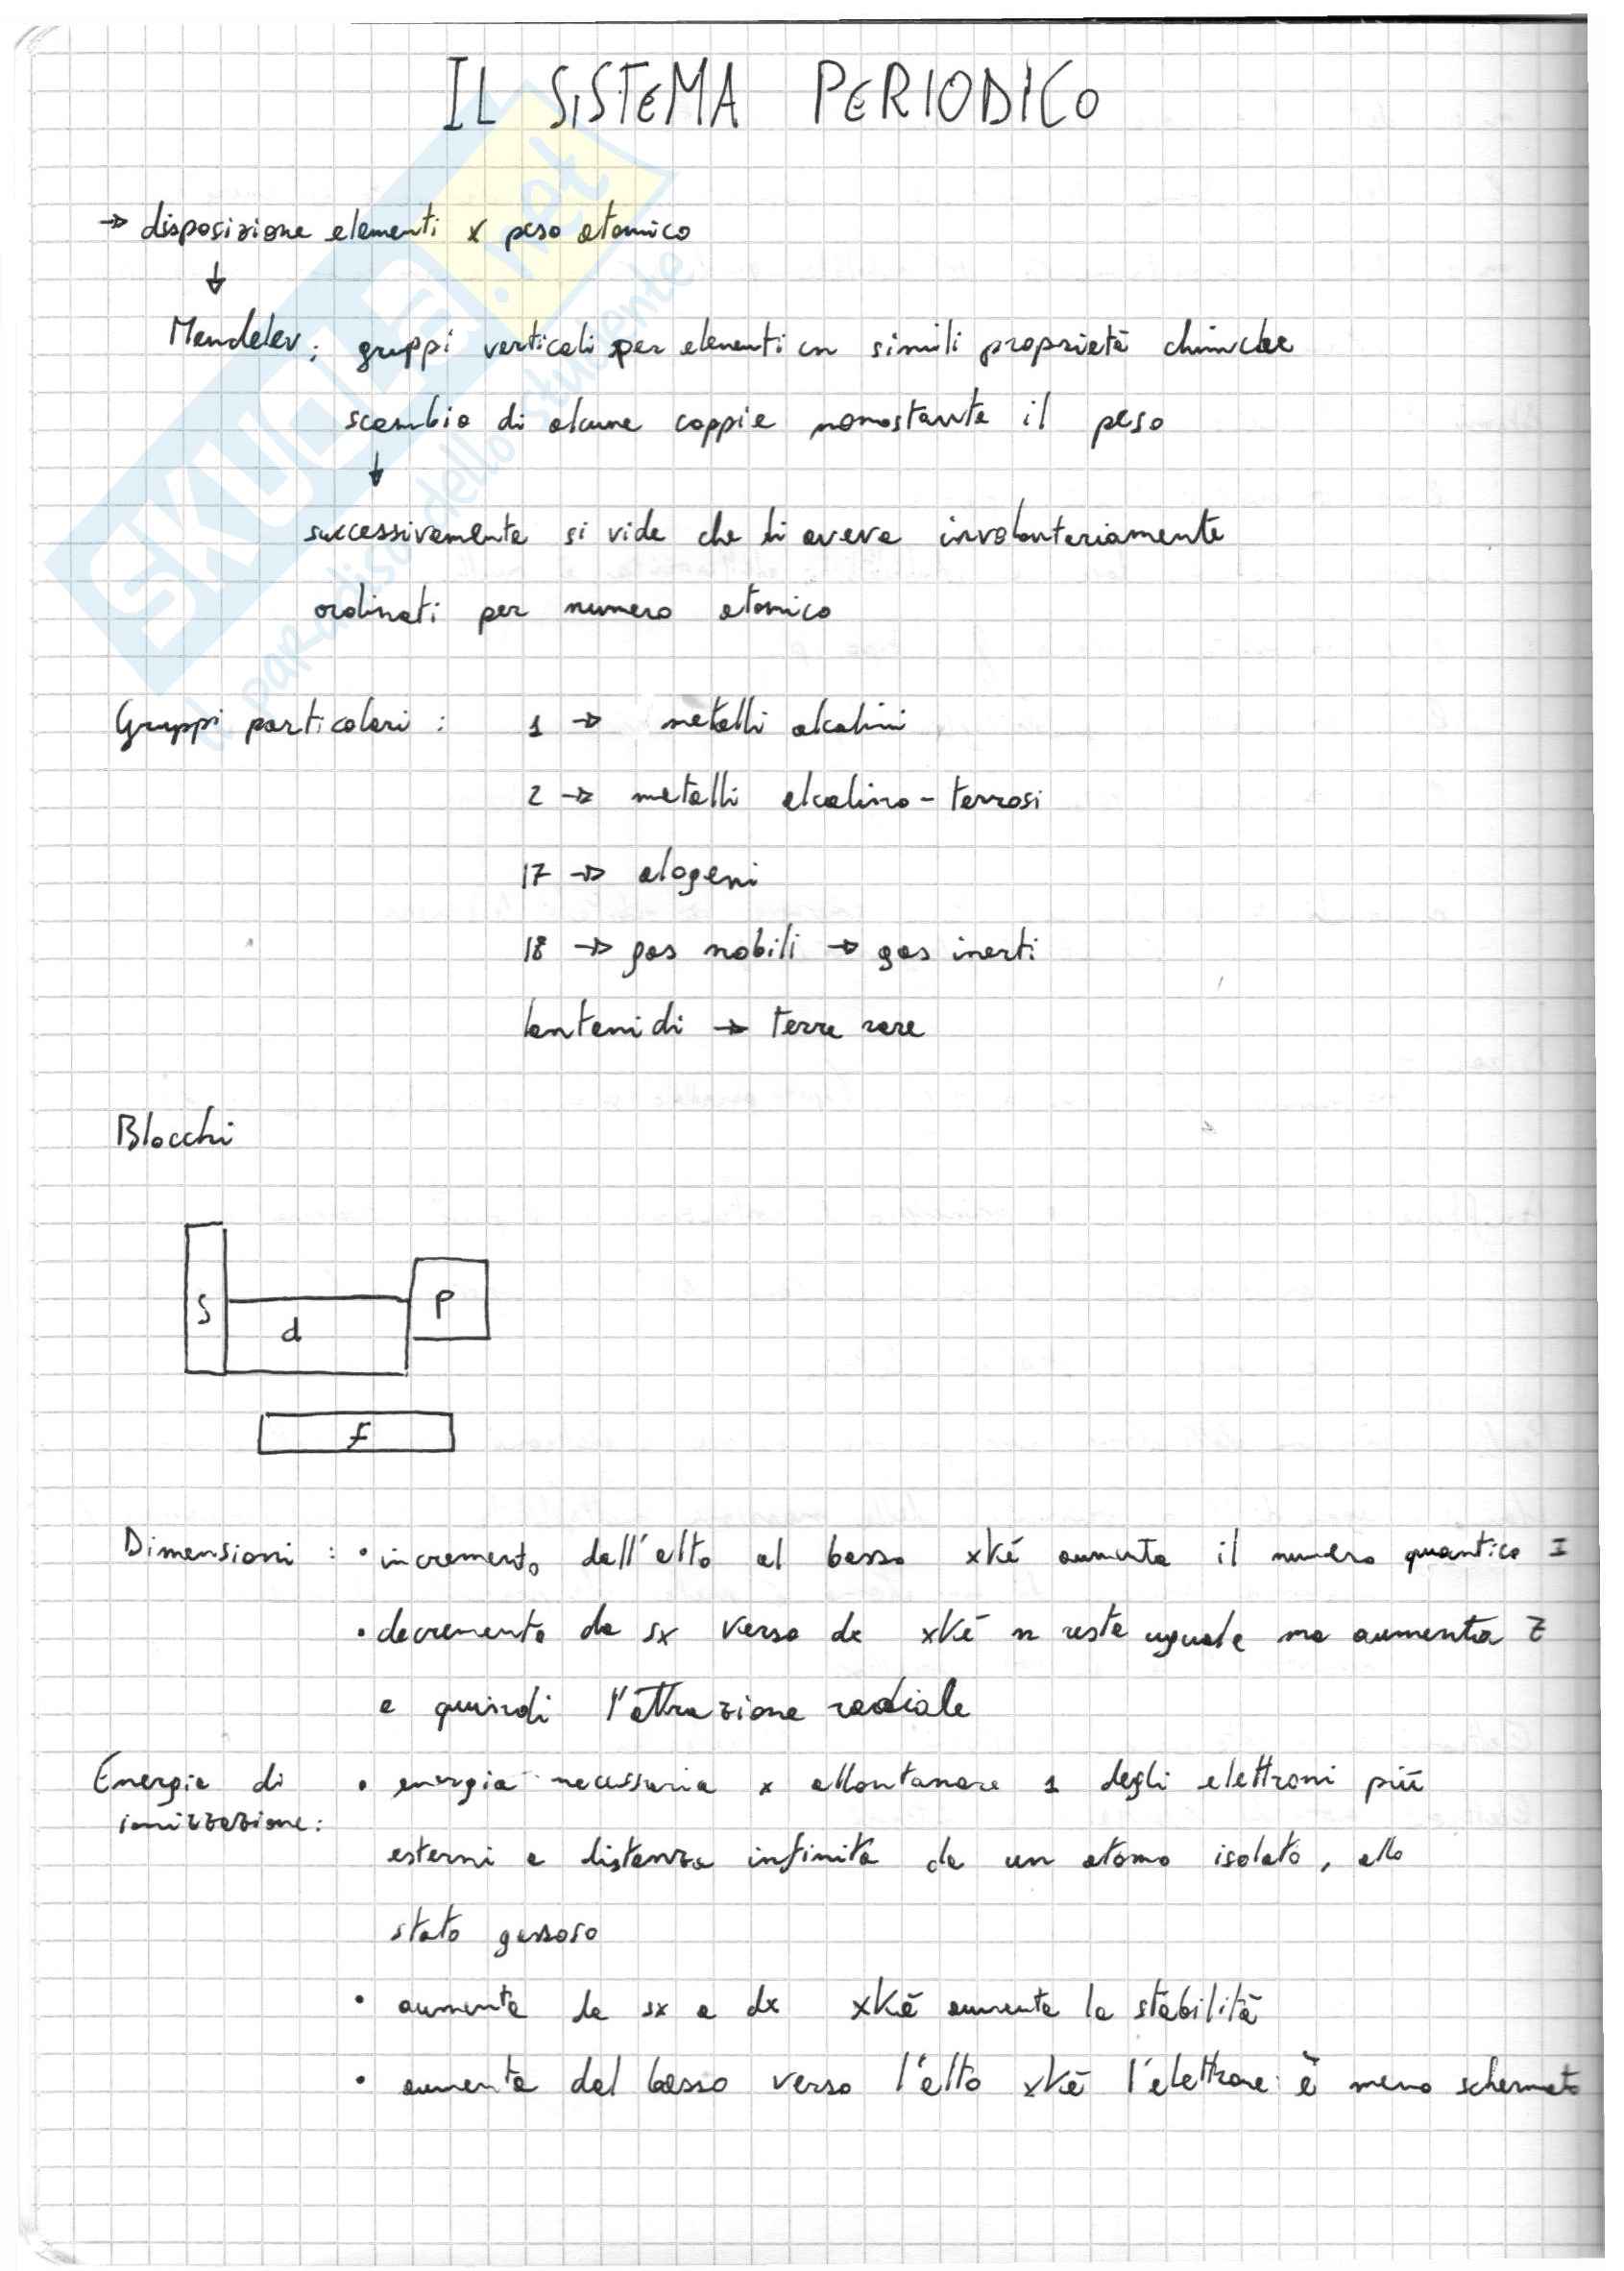 IL SISTEMA PERIODICO
→ disposizione elementi x peso atomico
↓
Mendelev: gruppi verticali per elementi cn simili proprietà chimiche
scambio di alcune coppie nonostante il peso
↓
successivamente si vide che li aveva involontariamente
ordinati per numero atomico
Gruppi particolari : 1 → metalli alcalini
2 → metalli alcalino-terrosi
17 → alogeni
18 → gas nobili → gas inerti
lantenidi → terre rare
Blocchi
S
d
P
f
Dimensioni : • incremento dall'alto al basso xké aumenta il numero quantico I
• decremento da sx verso dx xké n resta uguale ma aumenta Z
e quindi l'attrazione radiale
Energia di • energia necessaria x allontanare 1 degli elettroni più
ionizzazione:
esterni a distanza infinita da un atomo isolato, allo
stato gassoso
• aumenta da sx a dx xké aumenta la stabilità
• aumenta dal basso verso l'alto xké l'elettrone è meno schermato
SKUOLA.net
il paradiso dello studente